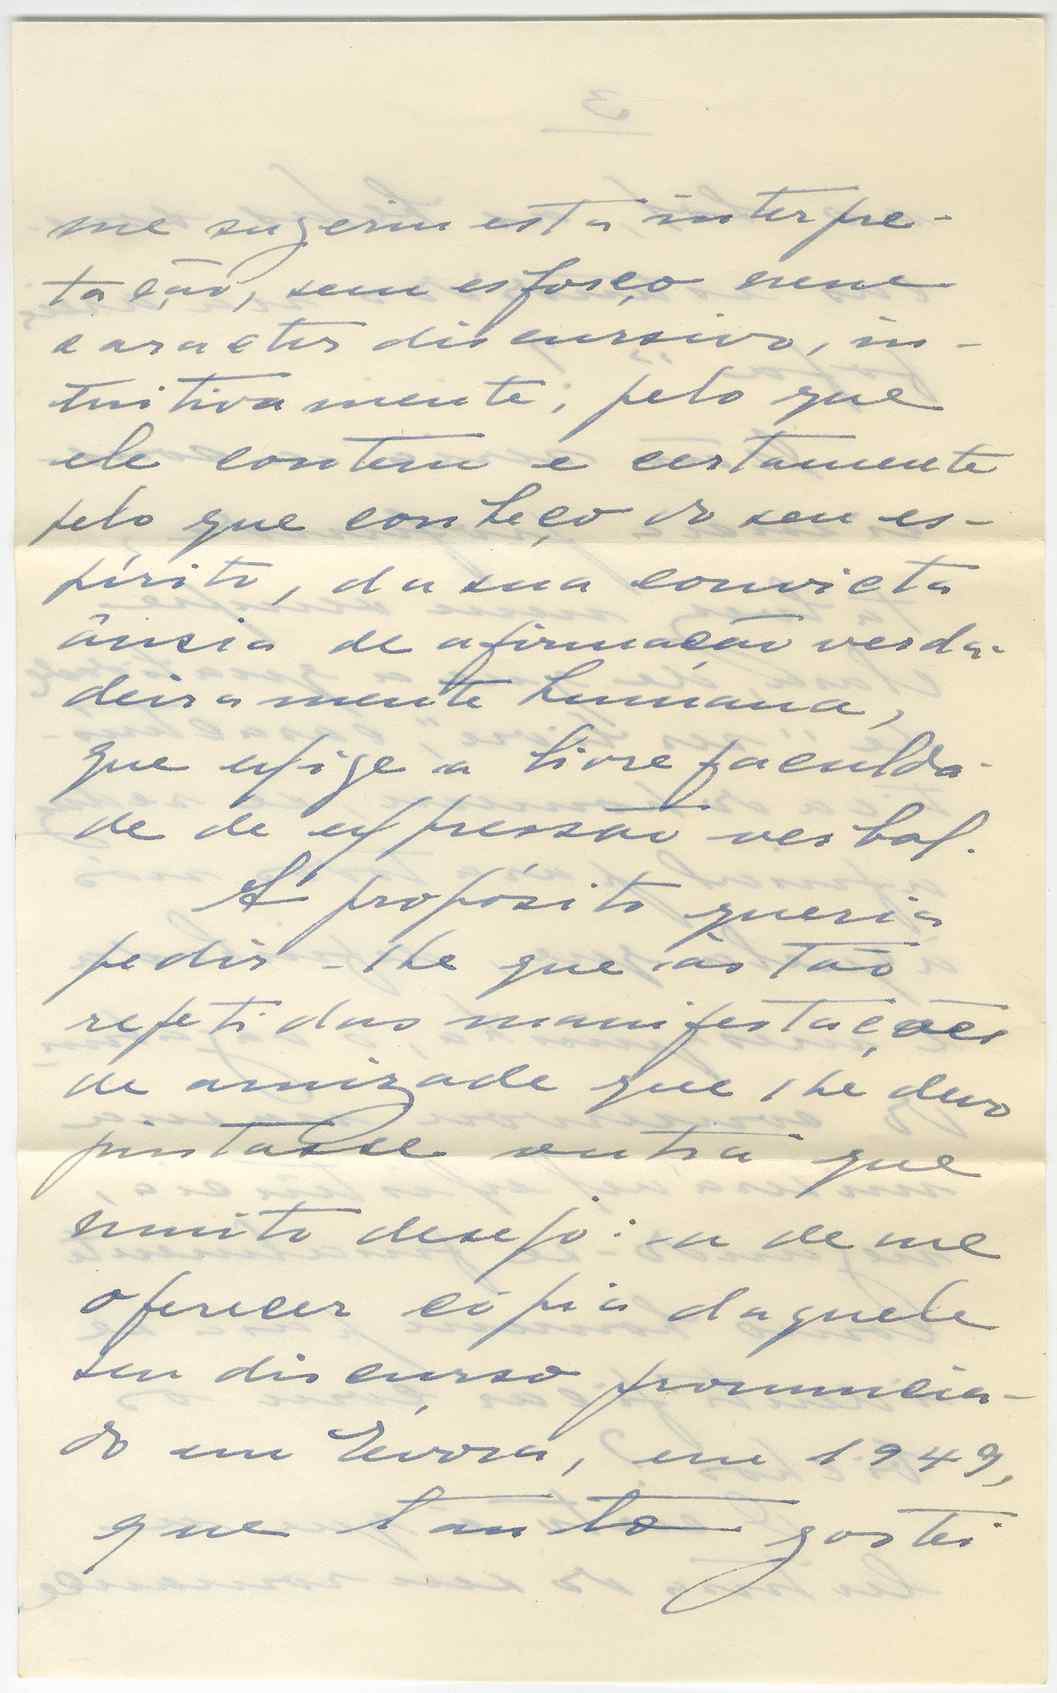 me sugeriu esta interpre-
tação, sem esforço nem
caracter discursivo, in-
tuitivamente; pelo que
ele contem e certamente
pelo que conheço do seu es-
pírito, da sua convicta
ânsia de afirmação verda-
deiramente humana,
que exige a livre faculda-
de de expressão verbal.
A propósito queria
pedir-lhe que às tão
repetidas manifestações
de amizade que lhe devo
juntasse outra que
muito desejo: a de me
oferecer cópia daquele
seu discurso pronuncia-
do em Évora, em 1949,
que tanto gostei